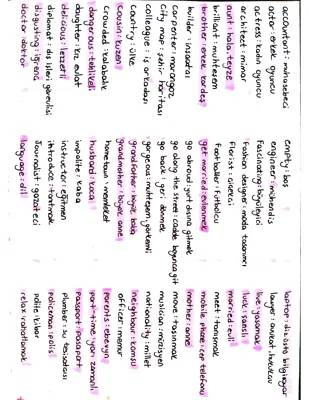 accountant : muhasebeci
actor : erkek oyuncu
actress : kadın oyuncu
architect : mimar
aunt : hala, teyze
brilliant : muhteşem
brother : erkek kardeş
builder : inşaatcı
carpenter : marangoz
city map : şehir haritası
colleague : iş arkadaşı
country : ülke
cousin : kuzen
crowded : kalabalık
dangerous : tehlikeli
daughter : kız evlat
delicious : lezzetli
diplomat : dış işleri görevlisi
disgusting : iğrenç
doctor : doktor
empty : boş
engineer : mühendis
fascinating : büyüleyici
fashion designer : moda tasarımcı
florist : çiçekçi
footballer : futbolcu
get married : evlenmek
go abroad : yurt dışına gitmek
go along the street : cadde boyunca git
go back : geri dönmek
gorgeous : muhteşem, görkemli
grandfather : büyük baba
grandmother : büyük anne
hometown : memleket
husband : koca
impolite : kaba
instructor : eğitmen
introduce : tanıtmak
journalist : gazeteci
language : dil
lawyer : avukat, hukukçu
live : yaşamak
luck : şans
married : evli
meet : tanışmak
mobile phone : cep telefonu
mother : anne
move : taşınmak
musician : müzisyen
nationality : millet
neighbour : komşu
officer : memur
parents : ebeveyn
part-time : yarı zamanlı
passport : pasaport
plumber : su tesisatçısı
policeman : polis
polite : kibar
relax : rahatlamak